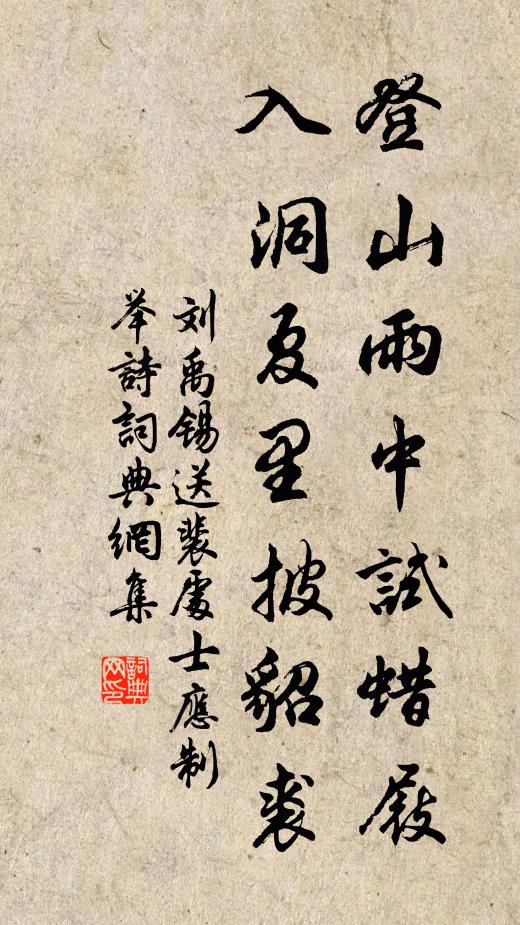 登山雨中試蜡屐
入洞夏里披貂裘
刘禹锡送裴處士應制
举詩詞典網集
詞典網印